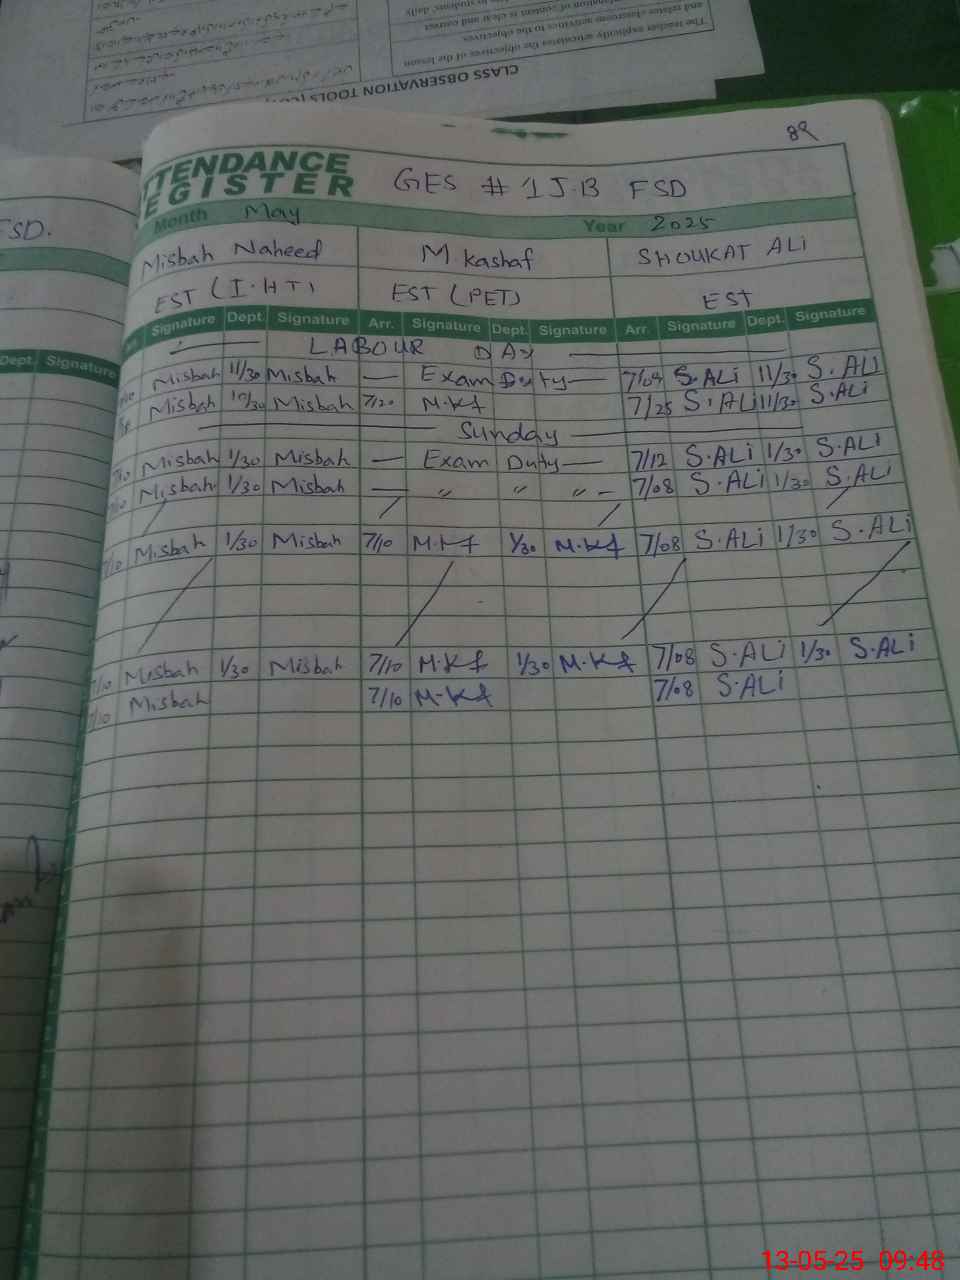 CLASS OBSERVATION TOOLS
The teacher explicitly articulates the objectives of the lesson
and relates classroom activities to the objectives
of content is clear and correct
89
TTENDANCE
EGISTER GES # 1 J.B FSD
FSD.
Month May Year 2025
Misbah Naheed M. Kashaf SHOUKAT ALi
EST (I.HT) EST (PET) EST
Signature Dept. Signature Arr. Signature Dept. Signature Arr. Signature Dept. Signature
Dept. Signature
LABOUR DAy
Misbah 11/30 Misbah — Exam Duty — S.ALi 11/30 S.ALI
Misbah Misbah 7/20 M.Kf 7/25 S.ALi 11/30 S.ALi
Sunday
7/10 Misbah 1/30 Misbah — Exam Duty — 7/12 S.ALi 1/30 S.ALi
7/10 Misbah 1/30 Misbah — " " " – 7/08 S.ALi 1/30 S.ALi
7/10 Misbah 1/30 Misbah 7/10 M.Kf 1/30 M.Kf 7/08 S.ALi 1/30 S.ALi
7/10 Misbah 1/30 Misbah 7/10 M.Kf 1/30 M.Kf 7/08 S.ALi 1/30 S.ALi
7/10 Misbah 7/10 M.Kf 7/08 S.ALi
13-05-25 09:48